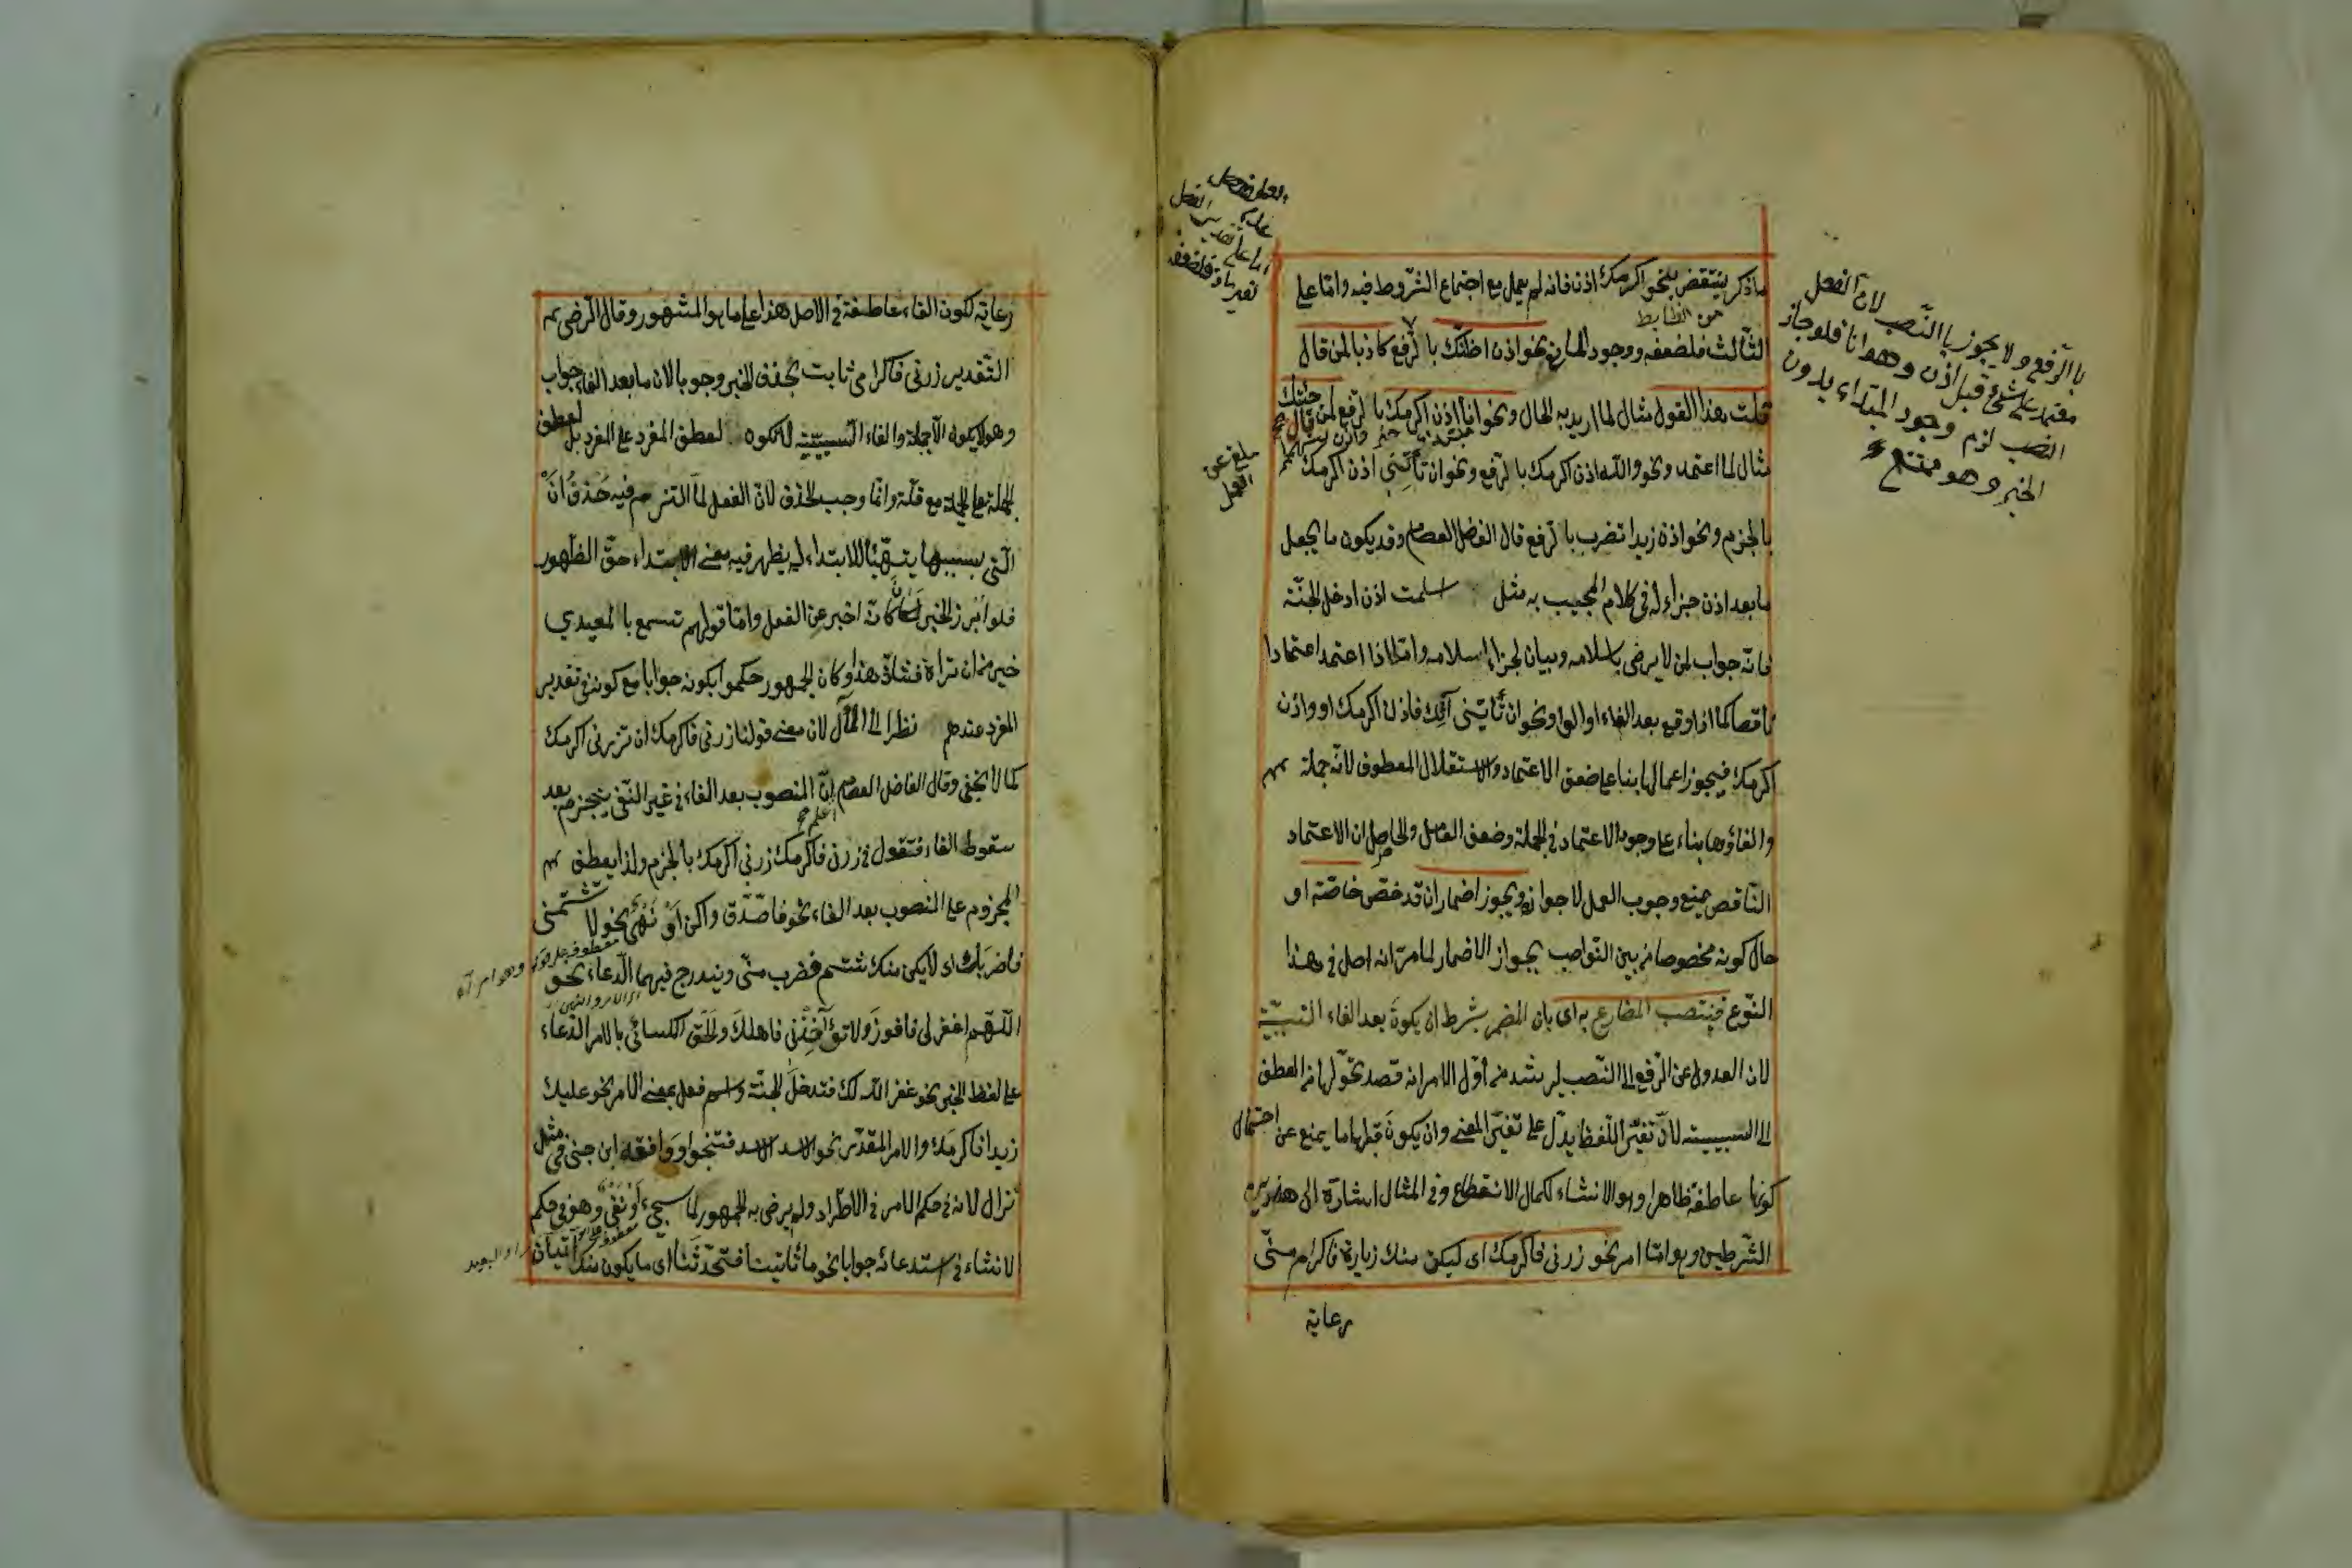 ما ذكر ينتقض بنحو اكرمك اذن فانه لم يعمل مع اجتماع الشروط فيه وامّا على
من الضابط
الثالث فلضعفه ووجود المعارض نحو اذن اظنّك بالرّفع كاذبا لمن قال
قلت هذا القول مثال لما اريد به الحال ونحو انا اذن اكرمك بالرّفع لمن قال جئتك
مثال لما اعتمد ونحو والله اذن اكرمك بالرّفع ونحو ان تأتني اذن اكرمك
بالجزم ونحو اذن زيدا تضرب بالرّفع قال الفاضل العصام وقد يكون ما يجعل
ما بعد اذن جزاء له في كلام المجيب به مثل اسلمت اذن ادخل الجنّة
فانّه جواب لمن لا يرضى باسلامه وبيان لجزاء اسلامه وامّا اذا اعتمد اعتمادا
ناقصا كما اذا وقع بعد الفاء او الواو ونحو ان تأتيني آتك فاذن اكرمك او واذن
اكرمك فيجوز اعمالها بناء على ضعف الاعتماد والاستقلال المعطوف لانّه جملة
والغاؤها بناء على وجود الاعتماد في الجملة وضعف العامل والحاصل ان الاعتماد
النّاقص يمنع وجوب العمل لا جوازه ويجوز اضمار ان قد خصّ خاصّة او
حال كونه مخصوصا من بين النّواصب بجواز الاضمار لما مرّ انه اصل في هذا
النّوع فينتصب المضارع به اى بان المضمر بشرط ان يكون بعد الفاء السّببيّة
لان العدول عن الرّفع الى النّصب ليرشد من أوّل الامر انه قصد تحوّلها من العطف
الى السببية لانّ تغيّر اللّفظ يدلّ على تغيّر المعنى وان يكون قبلها ما يمنع عن احتمال
كونها عاطفة ظاهرا وهو الانشاء لكمال الانقطاع وفي المثال اشارة الى هذين
الشّرطين وهو امّا امر نحو زرني فاكرمك اى ليكن منك زيارة فاكرام منّى
رعاية
لان الفعل
بالرّفع ولا يجوز بالنّصب
معتمد على شئ قبل اذن وهو انا فلو جاز
النصب لزم وجود المبتداء بدون
الخبر وهو ممتنع
ملغى عن
العمل
رعاية لكون الفاء عاطفة في الاصل هذا على ما هو المشهور وقال الرّضى
التّقدير زرني فاكرامى ثابت بحذف الخبر وجوبا لان ما بعد الفاء جواب
وهو لا يكون الّا جملة والفاء السّببيّة لا تكون لعطف المفرد على المفرد بل لعطف
الجملة على الجملة مع قلّة وانّما وجب الحذف لانّ الفعل لمّا التزم فيه حذف ان
الّتي بسببها يتهيّأ للابتداء لم يظهر فيه معنى الابتداء حقّ الظهور
فلو أبرز الخبر لكان كانّه اخبر عن الفعل وامّا قولهم تسمع بالمعيدي
خير من ان تراه فشاذّ هذا وكان الجمهور حكموا بكونه جوابا مع كونه في تقدير
المفرد عندهم نظرا الى المآل لان معنى قولنا زرني فاكرمك ان تزرني اكرمك
كما لا يخفى وقال الفاضل العصام انّ المنصوب بعد الفاء في غير النّفى ينجزم بعد
سقوط الفاء فتقول في زرني فاكرمك زرني اكرمك بالجزم ولذا يعطف
المجزوم على المنصوب بعد الفاء نحو فاصّدّق واكن او نهى نحو لا تشتمنى
فاضربك اى لا يكن منك شتم فضرب منّى ويندرج فيهما الدّعاء نحو
اللّهم اغفر لى فافوز ولا تؤاخذنى فاهلك وألحق الكسائى بالامر الدّعاء
على لفظ الخبر نحو غفر الله لك فتدخل الجنّة واسم فعل بمعنى الامر نحو عليك
زيدا فاكرمك والامر المقدّر نحو الاسد الاسد فتنجو ووافقه ابن جنى في مثل
نزال لانه في حكم الامر في الاطّراد ولم يرض به الجمهور لما سيجئ او نفى وهو في حكم
الانشاء في استدعائه جوابا نحو ما تأتينا فتحدّثنا اى ما يكون منك اتيان